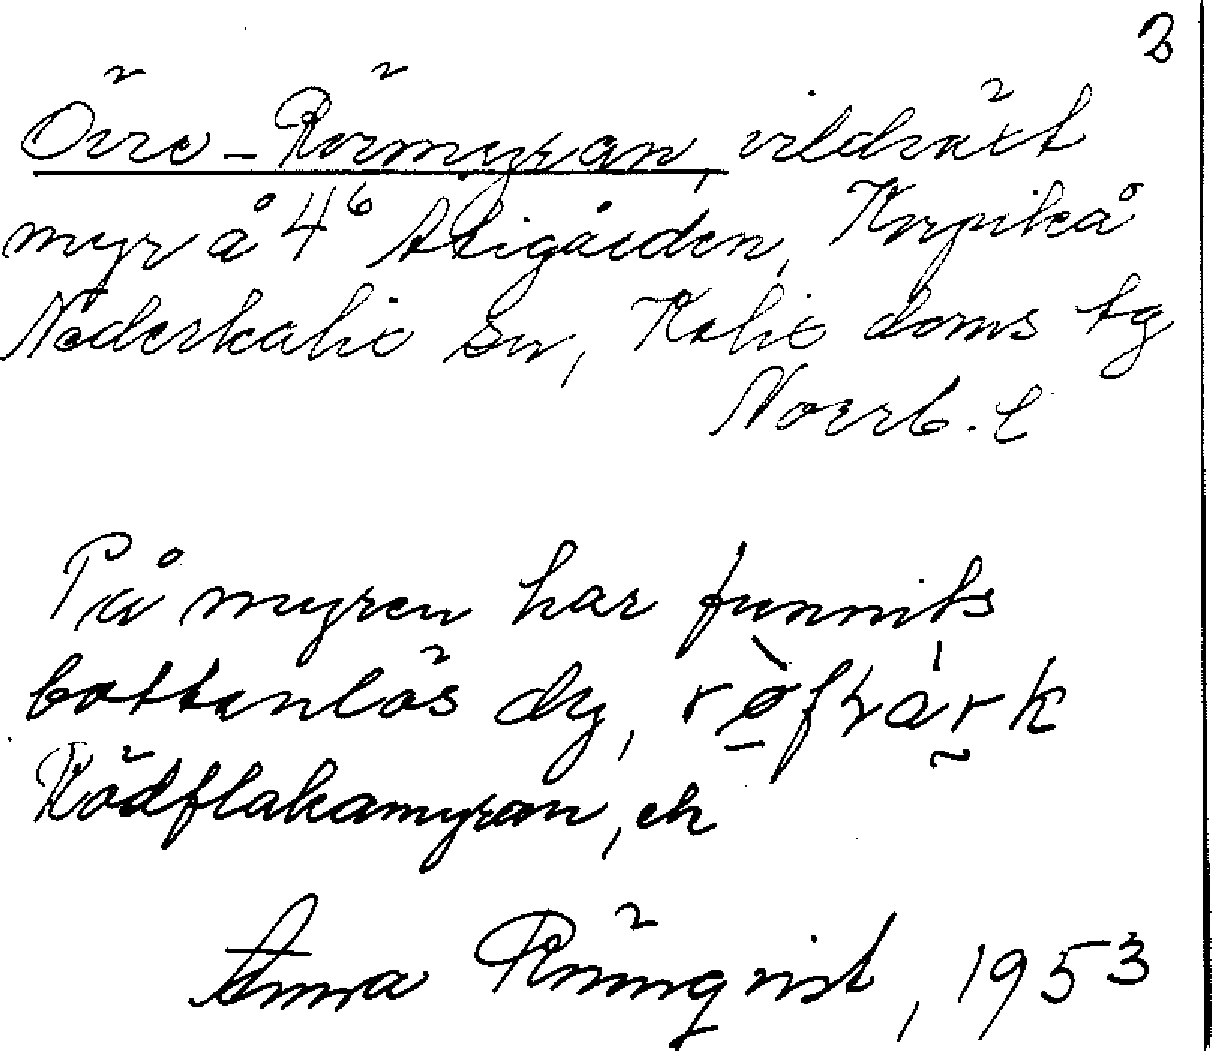 2
Övre-Rörmyran, vildvät
myr å 4⁶ Stigården, Korpikå
Nederkalix sn, Kalix doms tg
Norrb. l
På myren har funnits
bottenlös dy,
Rödflakamyran, ek
Anna Rönnqvist, 1953